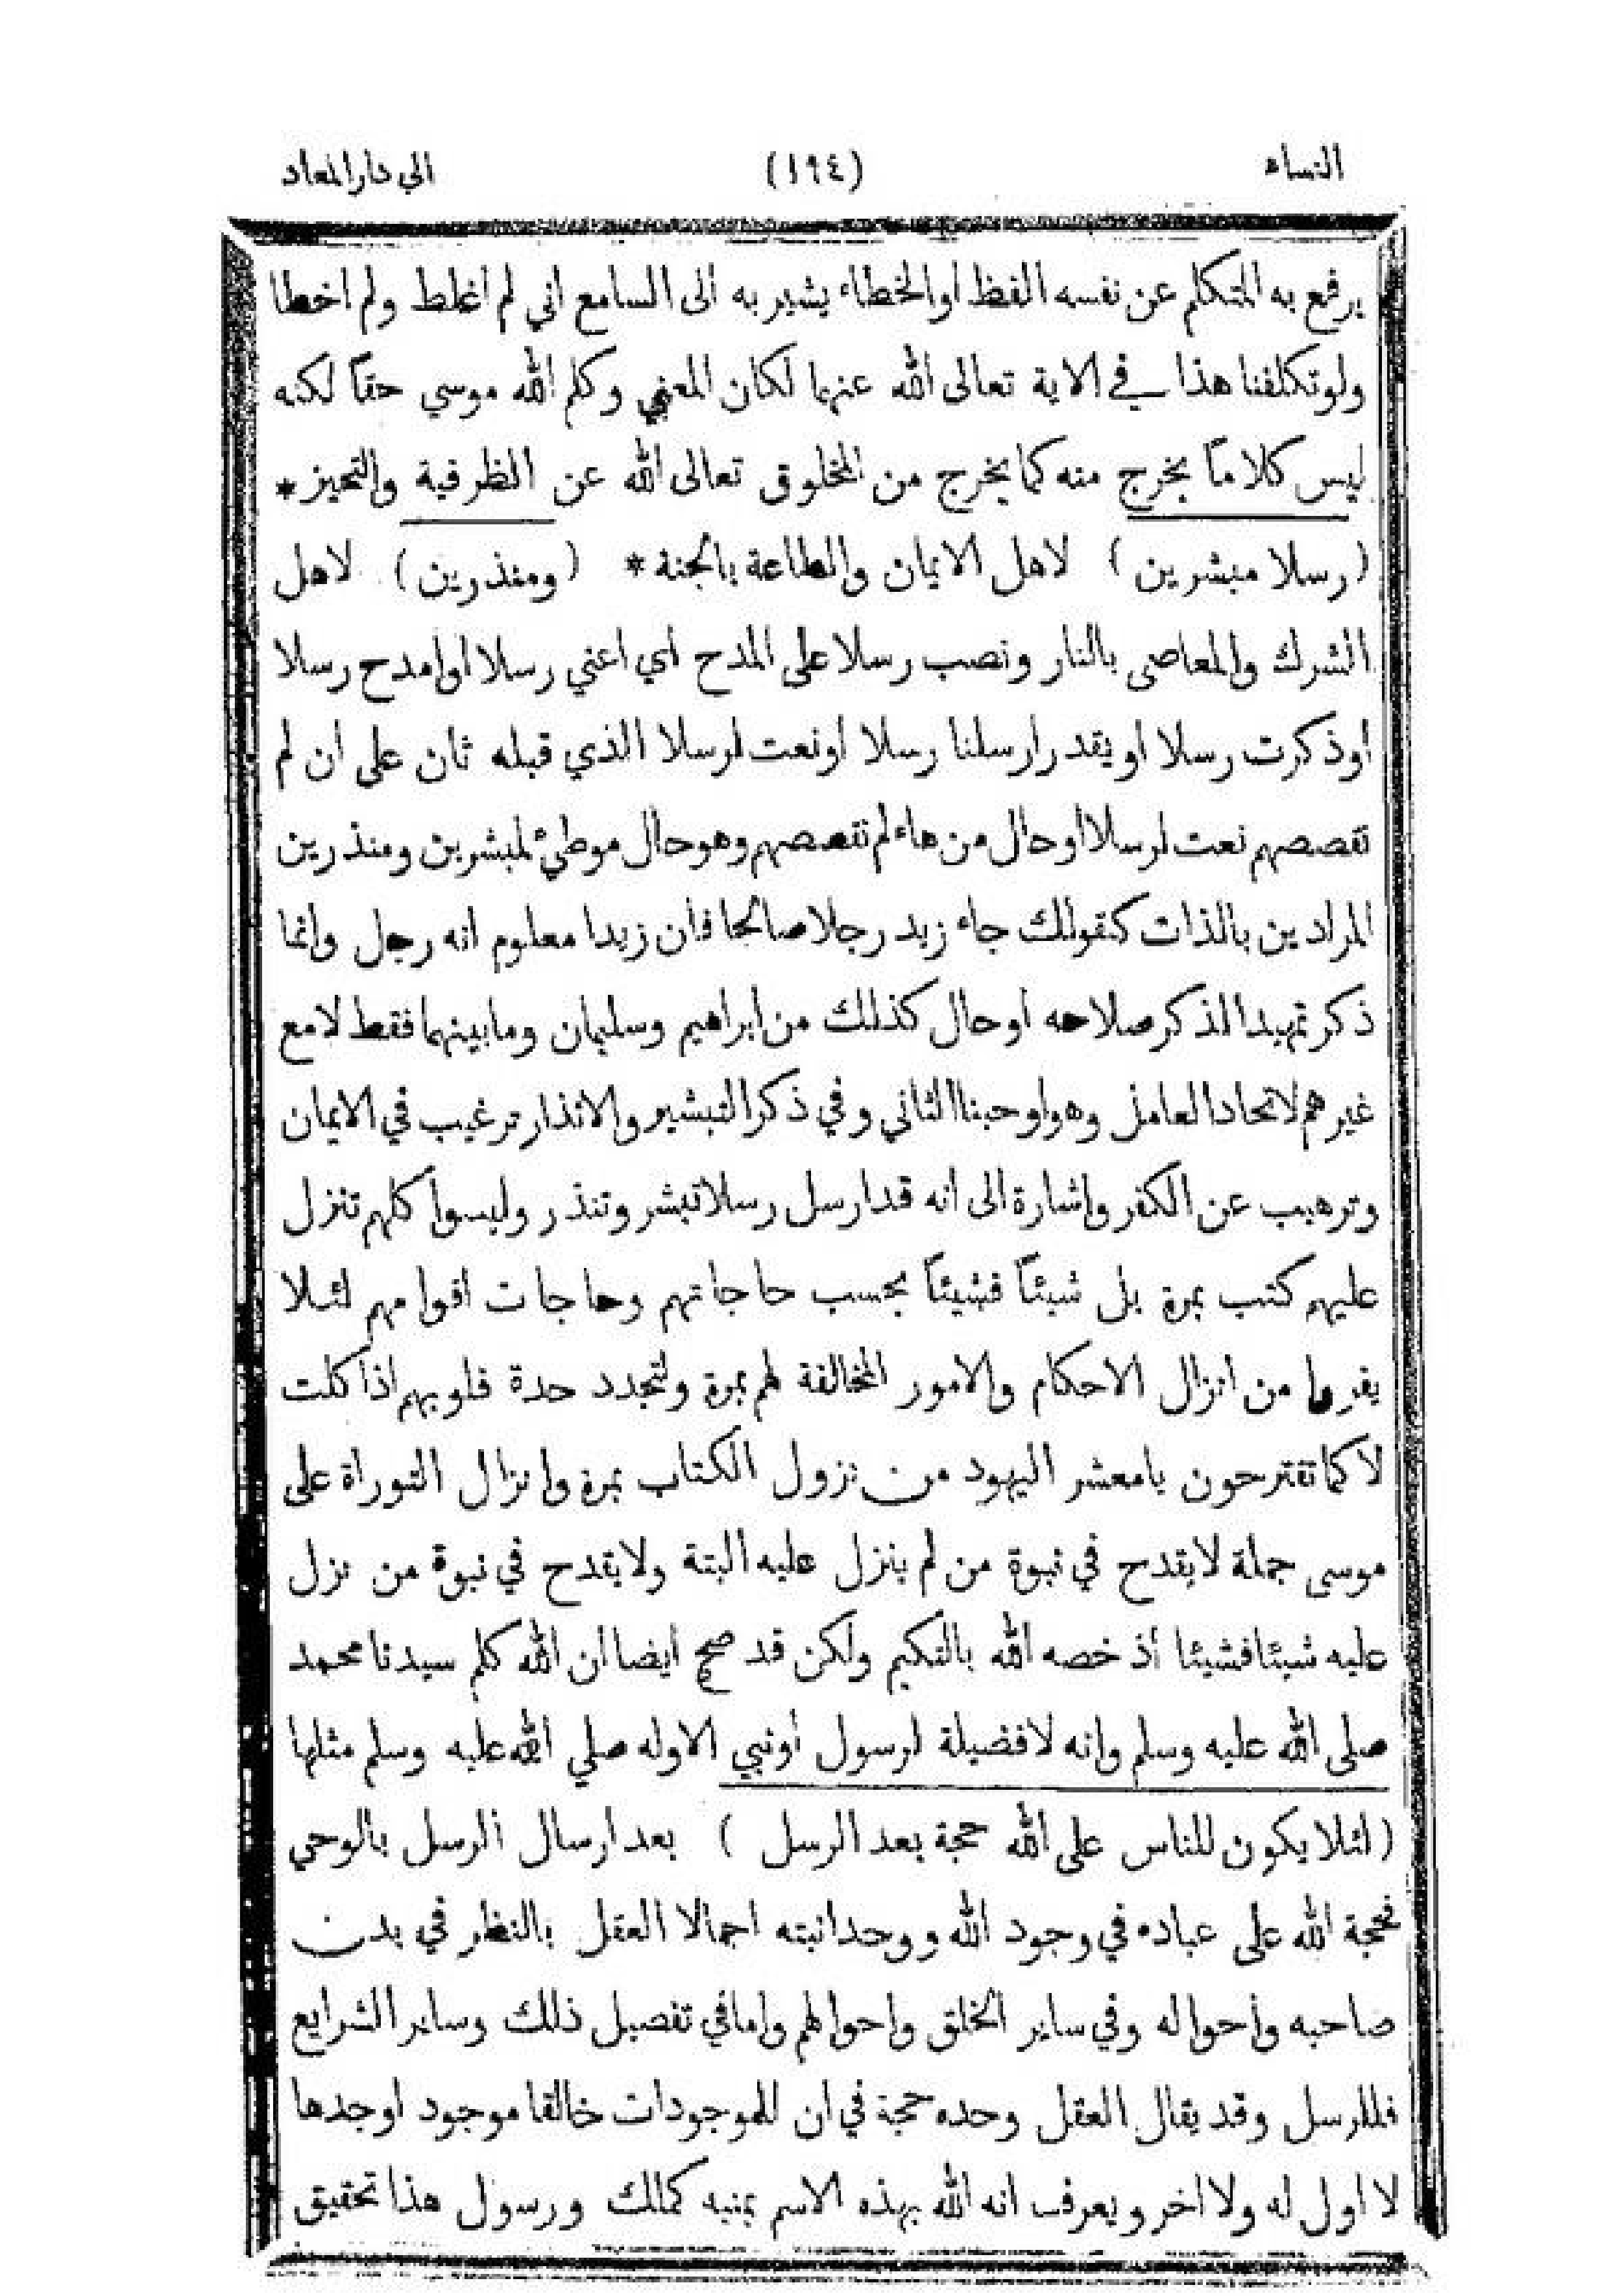 النساء (١٩٤) الى دار المعاد
يرفع به المتكلم عن نفسه الفظ او الخطاء يشير به الى السامع اني لم اغلط ولم اخطا
ولو تكلفنا هذا في الاية تعالى الله عنها لكان المعني وكلم الله موسي حقاً لكنه
ليس كلاماً يخرج منه كما يخرج من المخلوق تعالى الله عن الظرفية والتحيز *
(رسلا مبشرين) لاهل الايمان والطاعة بالجنة * (ومنذرين) لاهل
الشرك والمعاصى بالنار ونصب رسلا على المدح اي اعني رسلا او امدح رسلا
او ذكرت رسلا او يقدر ارسلنا رسلا او نعت لرسلا الذي قبله ثان على ان لم
نقصصهم نعت لرسلا او حال من هاء لم نقصصهم وهو حال موطئ لمبشرين ومنذرين
المرادين بالذات كقولك جاء زيد رجلا صالحا فان زيدا معلوم انه رجل وانما
ذكر تمهيدا لذكر صلاحه او حال كذلك من ابراهيم وسليمان وما بينهما فقط لا مع
غيرهم لاتحاد العامل وهو اوحينا الثاني وفي ذكر التبشير والانذار ترغيب في الايمان
وترهيب عن الكفر واشارة الى انه قد ارسل رسلا تبشر وتنذر وليسوا كلهم تنزل
عليهم كتب بمرة بل شيئاً فشيئاً بحسب حاجاتهم وحاجات اقوامهم لئلا
يفروا من انزال الاحكام والامور المخالفة لهم بمرة ولتجدد حدة قلوبهم اذا كلت
لا كما تقترحون يا معشر اليهود من نزول الكتاب بمرة وانزال التوراة على
موسى جملة لا يقدح في نبوة من لم ينزل عليه البتة ولا يقدح في نبوة من نزل
عليه شيئا فشيئا اذ خصه الله بالتكيم ولكن قد صح ايضا أن الله كلم سيدنا محمد
صلى الله عليه وسلم وانه لا فضيلة لرسول أو نبي الا وله صلي الله عليه وسلم مثلها
(لئلا يكون للناس على الله حجة بعد الرسل) بعد ارسال الرسل بالوحي
فحجة الله على عباده في وجود الله ووحدانيته اجمالا العقل بالنظر في بدن
صاحبه وأحواله وفي ساير الخلق واحوالهم واما في تفصيل ذلك وساير الشرايع
فللرسل وقد يقال العقل وحده حجة في ان للموجودات خالقا موجود اوجدها
لا اول له ولا اخر ويعرف انه الله بهذه الاسم بمنبه كملك ورسول هذا تحقيق